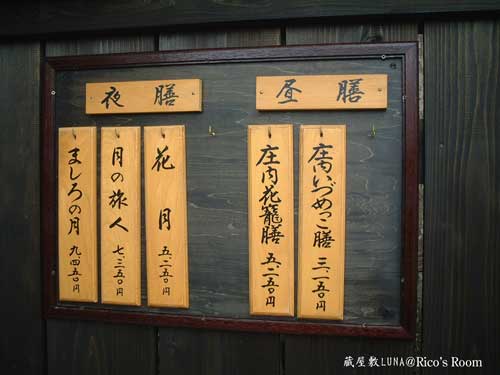 昼膳
庄内いづめっこ膳 三、一五〇円
庄内花籠膳 五、二五〇円
夜膳
花月 五、二五〇円
月の旅人 七、三五〇円
ましろの月 九、四五〇円
蔵屋敷LUNA@Rico's Room